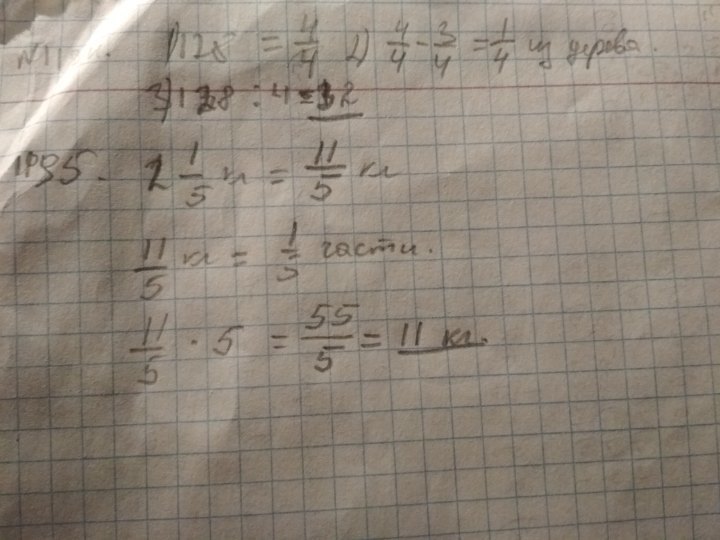 1) 128 = 4/4 2) 4/4 - 3/4 = 1/4 из дерева.
3) 128 : 4 = 32
№95. 2 1/5 кг = 11/5 кг
11/5 кг = 1/5 части.
11/5 · 5 = 55/5 = 11 кг.